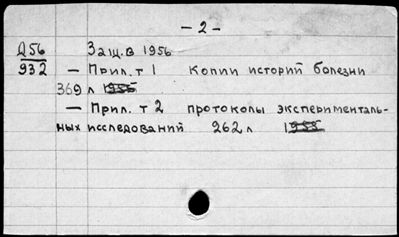 — 2 —
Д56 Защ. в 1956
932 — Прил. т 1 Копии историй болезни
369 л 1955
— Прил. т 2 протоколы эксперименталь-
ных исследований 262 л 1955